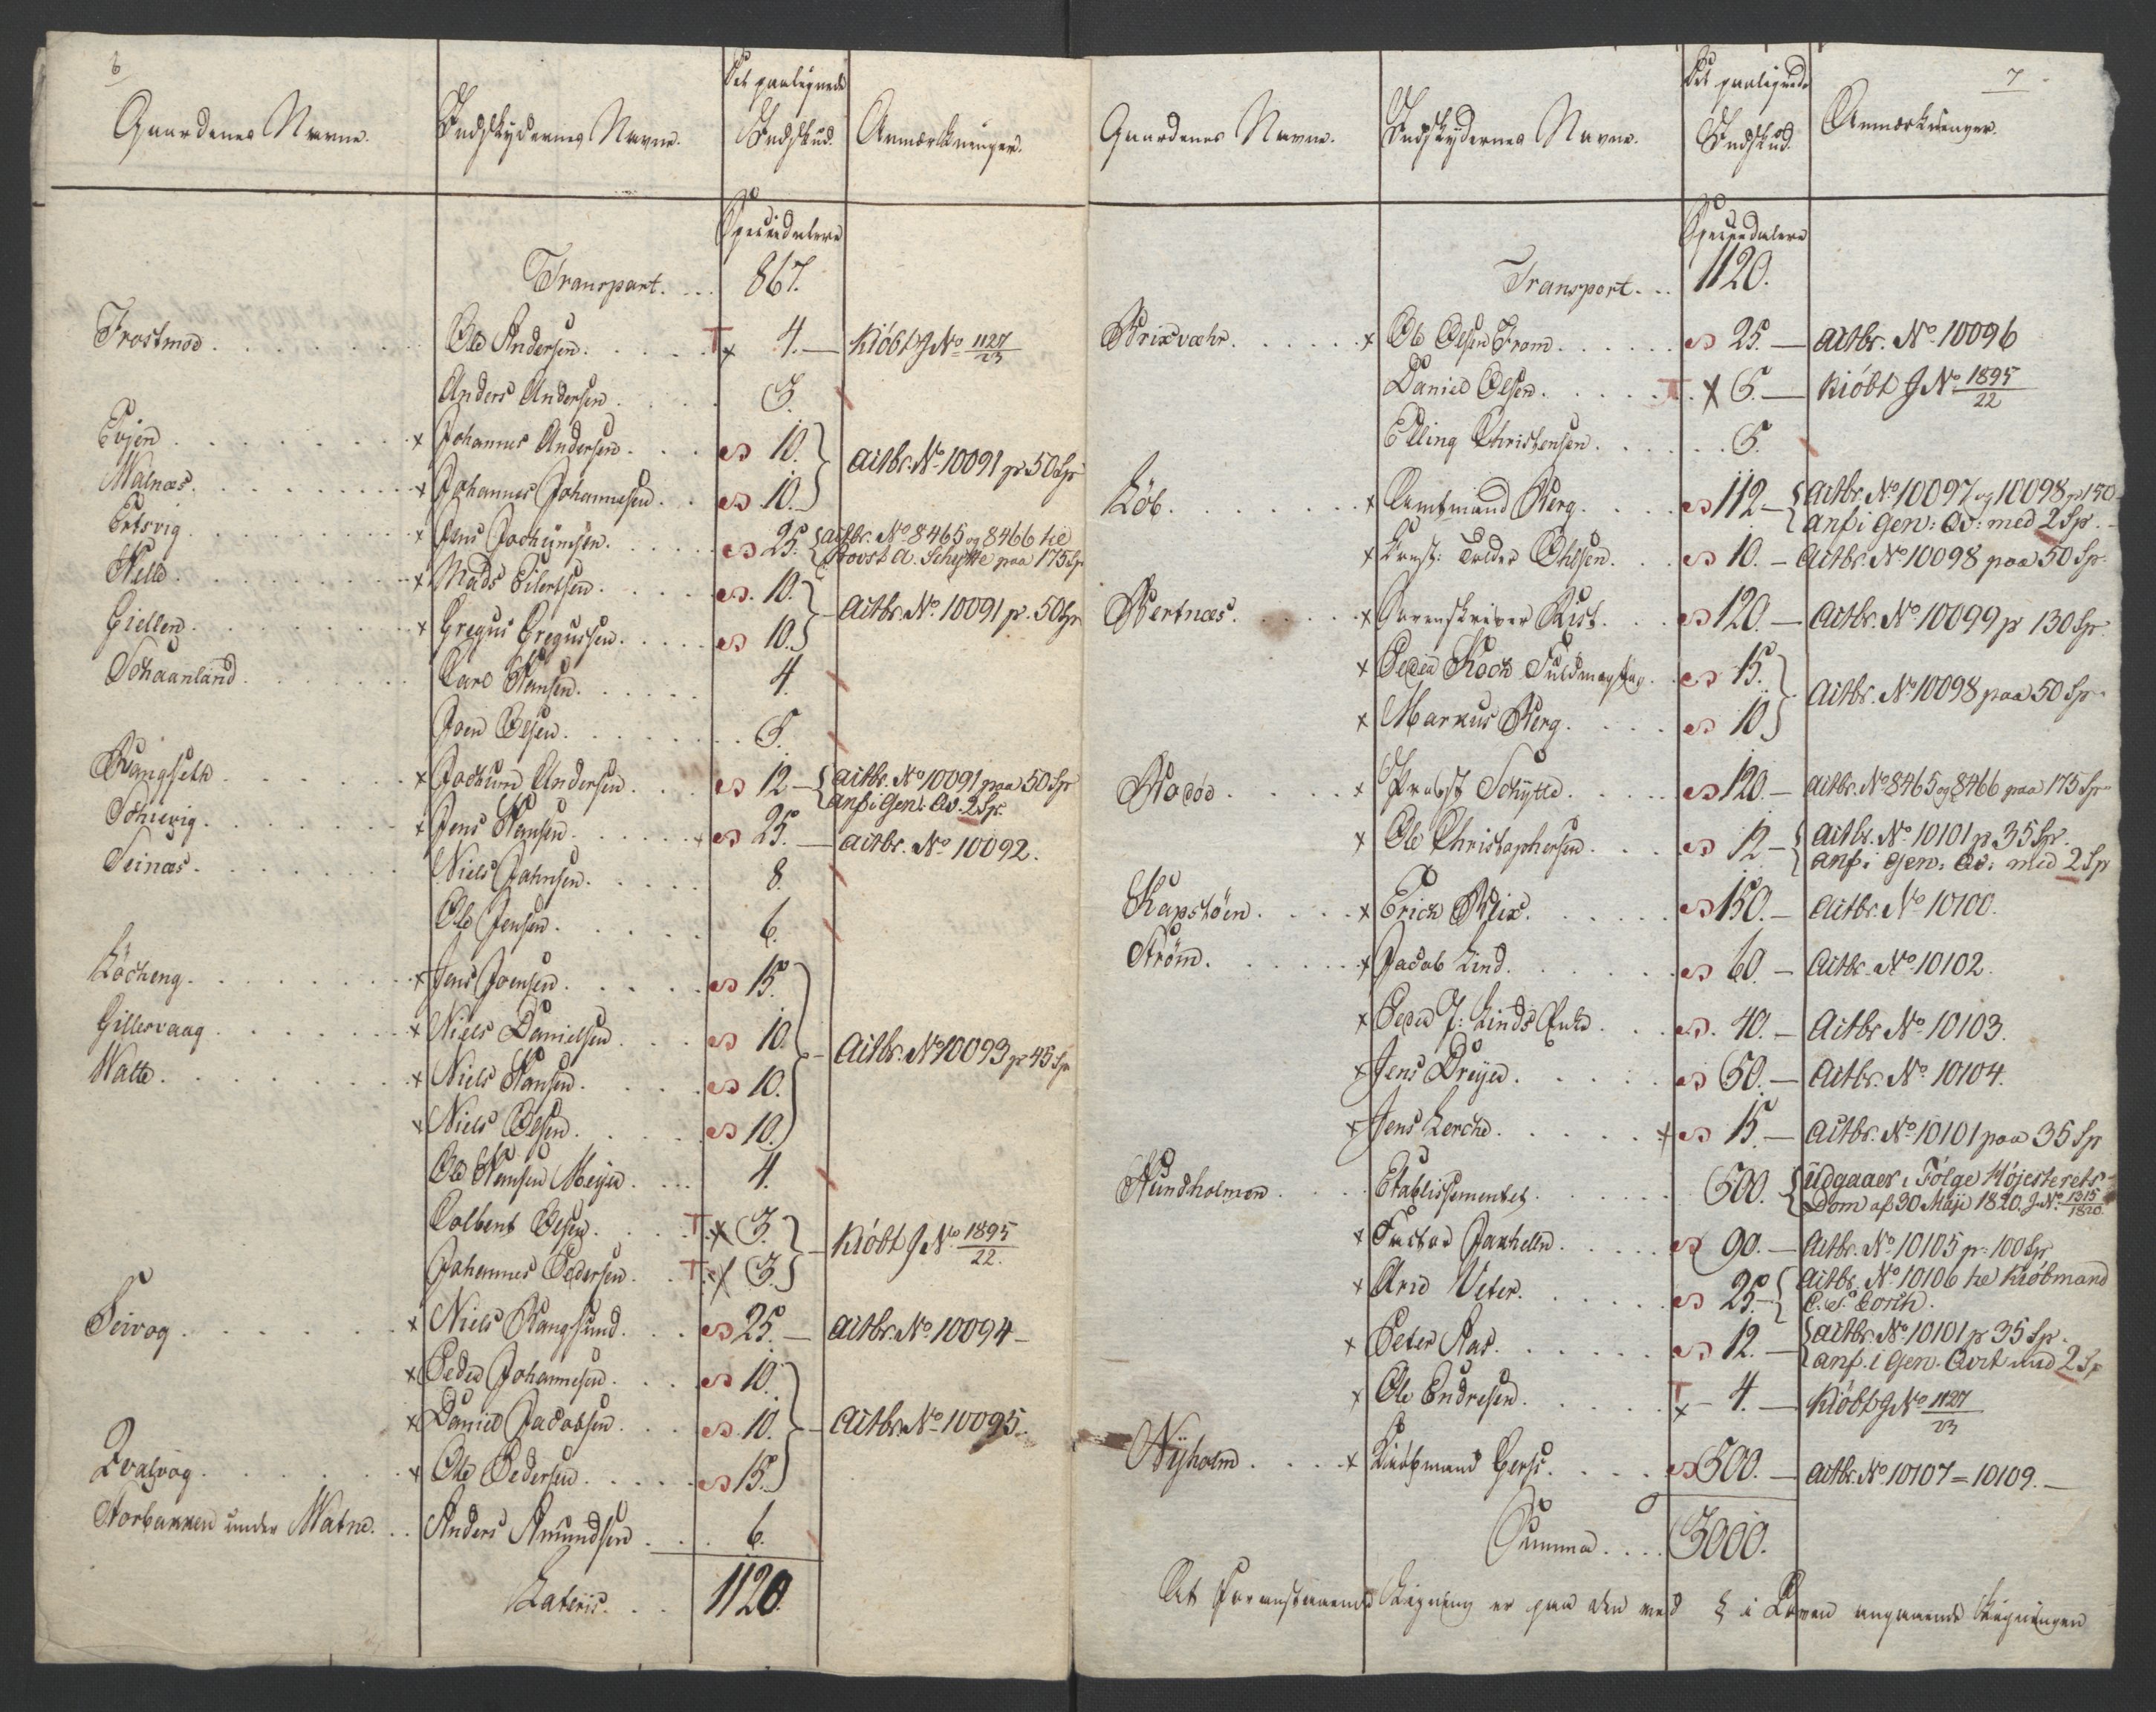 6
Gaardenes Navne. Indskydernes Navne. Det paalignede Indskud. Anmærkninger.
Speciedalere
Transport. . . 867.
Frostmoe . . . Ole Andersen . . . T x 4. — Kiöbt J No 1127/23
Anders Andersen . . . 3.
Evjen . . . x Johannes Andersen . . . 10. } Actbr. No 10091 p 50 Sp
Walnæs . . . x Johannes Johannesen . . . 10.
Ertsvig . . . x Jens Jochumsen . . . 25. { Actbr. No 8465 og 8466 he
Provst A. Schytte paa 175 Sp
x Mads Eilertsen . . . 10. } Actbr. No 10091 p. 50 Sp
Giellen . . . x Gregus Gregussen . . . 10.
Schaanland . . . Carl Hansen . . . 4.
Joen Olsen . . . 5.
x Jochum Andersen . . . 12 — { Actbr. No 10091 paa 50 Sp
anf i Gen: Qv. 2 Sp.
x Jens Hansen . . . 25. — Actbr. No 10092.
Seinæs . . . Niels Johnsen . . . 8.
Ole Jensen . . . 6.
Löcheng . . . x Jens Joensen . . . 15.
Gillesvaag . . . x Niels Danielsen . . . 10. } Actbr. No 10093 p 45 Sp
Walle . . . x Niels Hansen . . . 10.
x Niels Olsen . . . 10.
Ole Hansen Meyer . . . 4.
Colbent Olsen . . . T x 3. } Kiöbt J No 1895/22.
Johannes Pedersen . . . T x 3.
Seivog . . . x Niels Rangsund . . . 25. — Actbr. No 10094 —
x Peder Johannesen . . . 10.
x Daniel Jacobsen . . . 10. } — Actbr. No 10095.
Qvalvog . . . x Ole Pedersen . . . 15.
Storbakken under Walne . . . Anders Amundsen . . . 6.
Lateris . . . 1120.
7
Gaardenes Navne. Indskydernes Navne. Det paalignede Indskud. Anmærkninger.
Speciedalere
Transport . . . 1120.
Brixvæhr . . . x Ole Olsen From . . . 25. — Actbr. No 10096
Daniel Olsen . . . T x 5. — Kiöbt J No 1895/22
Elling Christensen . . . 5.
Löb . . . x Amtmand Berg . . . 112 — { Actbr. No 10097 og 10098 p 150
anf i Gen: Qv: med 2 Sp.
x Const: Tolder Ohlsen . . . 10. — Actbr. No 10098 paa 50 Sp.
Bertnæs . . . x Sorenskriver Rist . . . 120. — Actbr. No 10099 p 130 Sp.
x Peder Koch Fuldmægtig . . . 15. } Actbr. No 10098 paa 50 Sp.
x Markus Berg . . . 10.
Bodöe . . . x Probst Schytte . . . 120. — Actbr. No 8465 og 8466 paa 175 Sp.
x Ole Christophersen . . . 12 — { Actbr. No 10101 p 35 Sp.
anf i Gen: Qv: med 2 Sp
x Erich Blix . . . 150. — Actbr. No 10100.
Ström . . . x Jacob Lind . . . 60. — Actbr. No 10102.
x Peder J: Linds Enke . . . 40. — Actbr No 10103.
x Jens Dreyer . . . 50. — Actbr. No 10104.
x Jens Lerche . . . x 15. — Actbr. No 10101 paa 35 Sp
Hundholmen . . . Etablissementet . . . 500. { Udgaaer i Fölge Höjesterets
Dom af 30 Maji 1820. J No. 1315/1820.
x Factor Jankelln . . . 90. — Actbr. No 10105 p: 100 Sp
x Arid Veter . . . 25. — { Actbr. No 10106 he Kiöbmand
x Peter . . . 12. — { Actbr. No 10101 p 35 Sp.
anf. i Gen. Qvit med 2 Sp
x Ole Endresen . . . T x 4. — Kiöbt J No 1127/23
Nyholm . . . x Kiöbmand . . . 500. — Actbr. No 10107 = 10109. —
Summa . . . 3000.
At foranstaaende Ligning er paa den ved § i Loven angaaende Ligningen